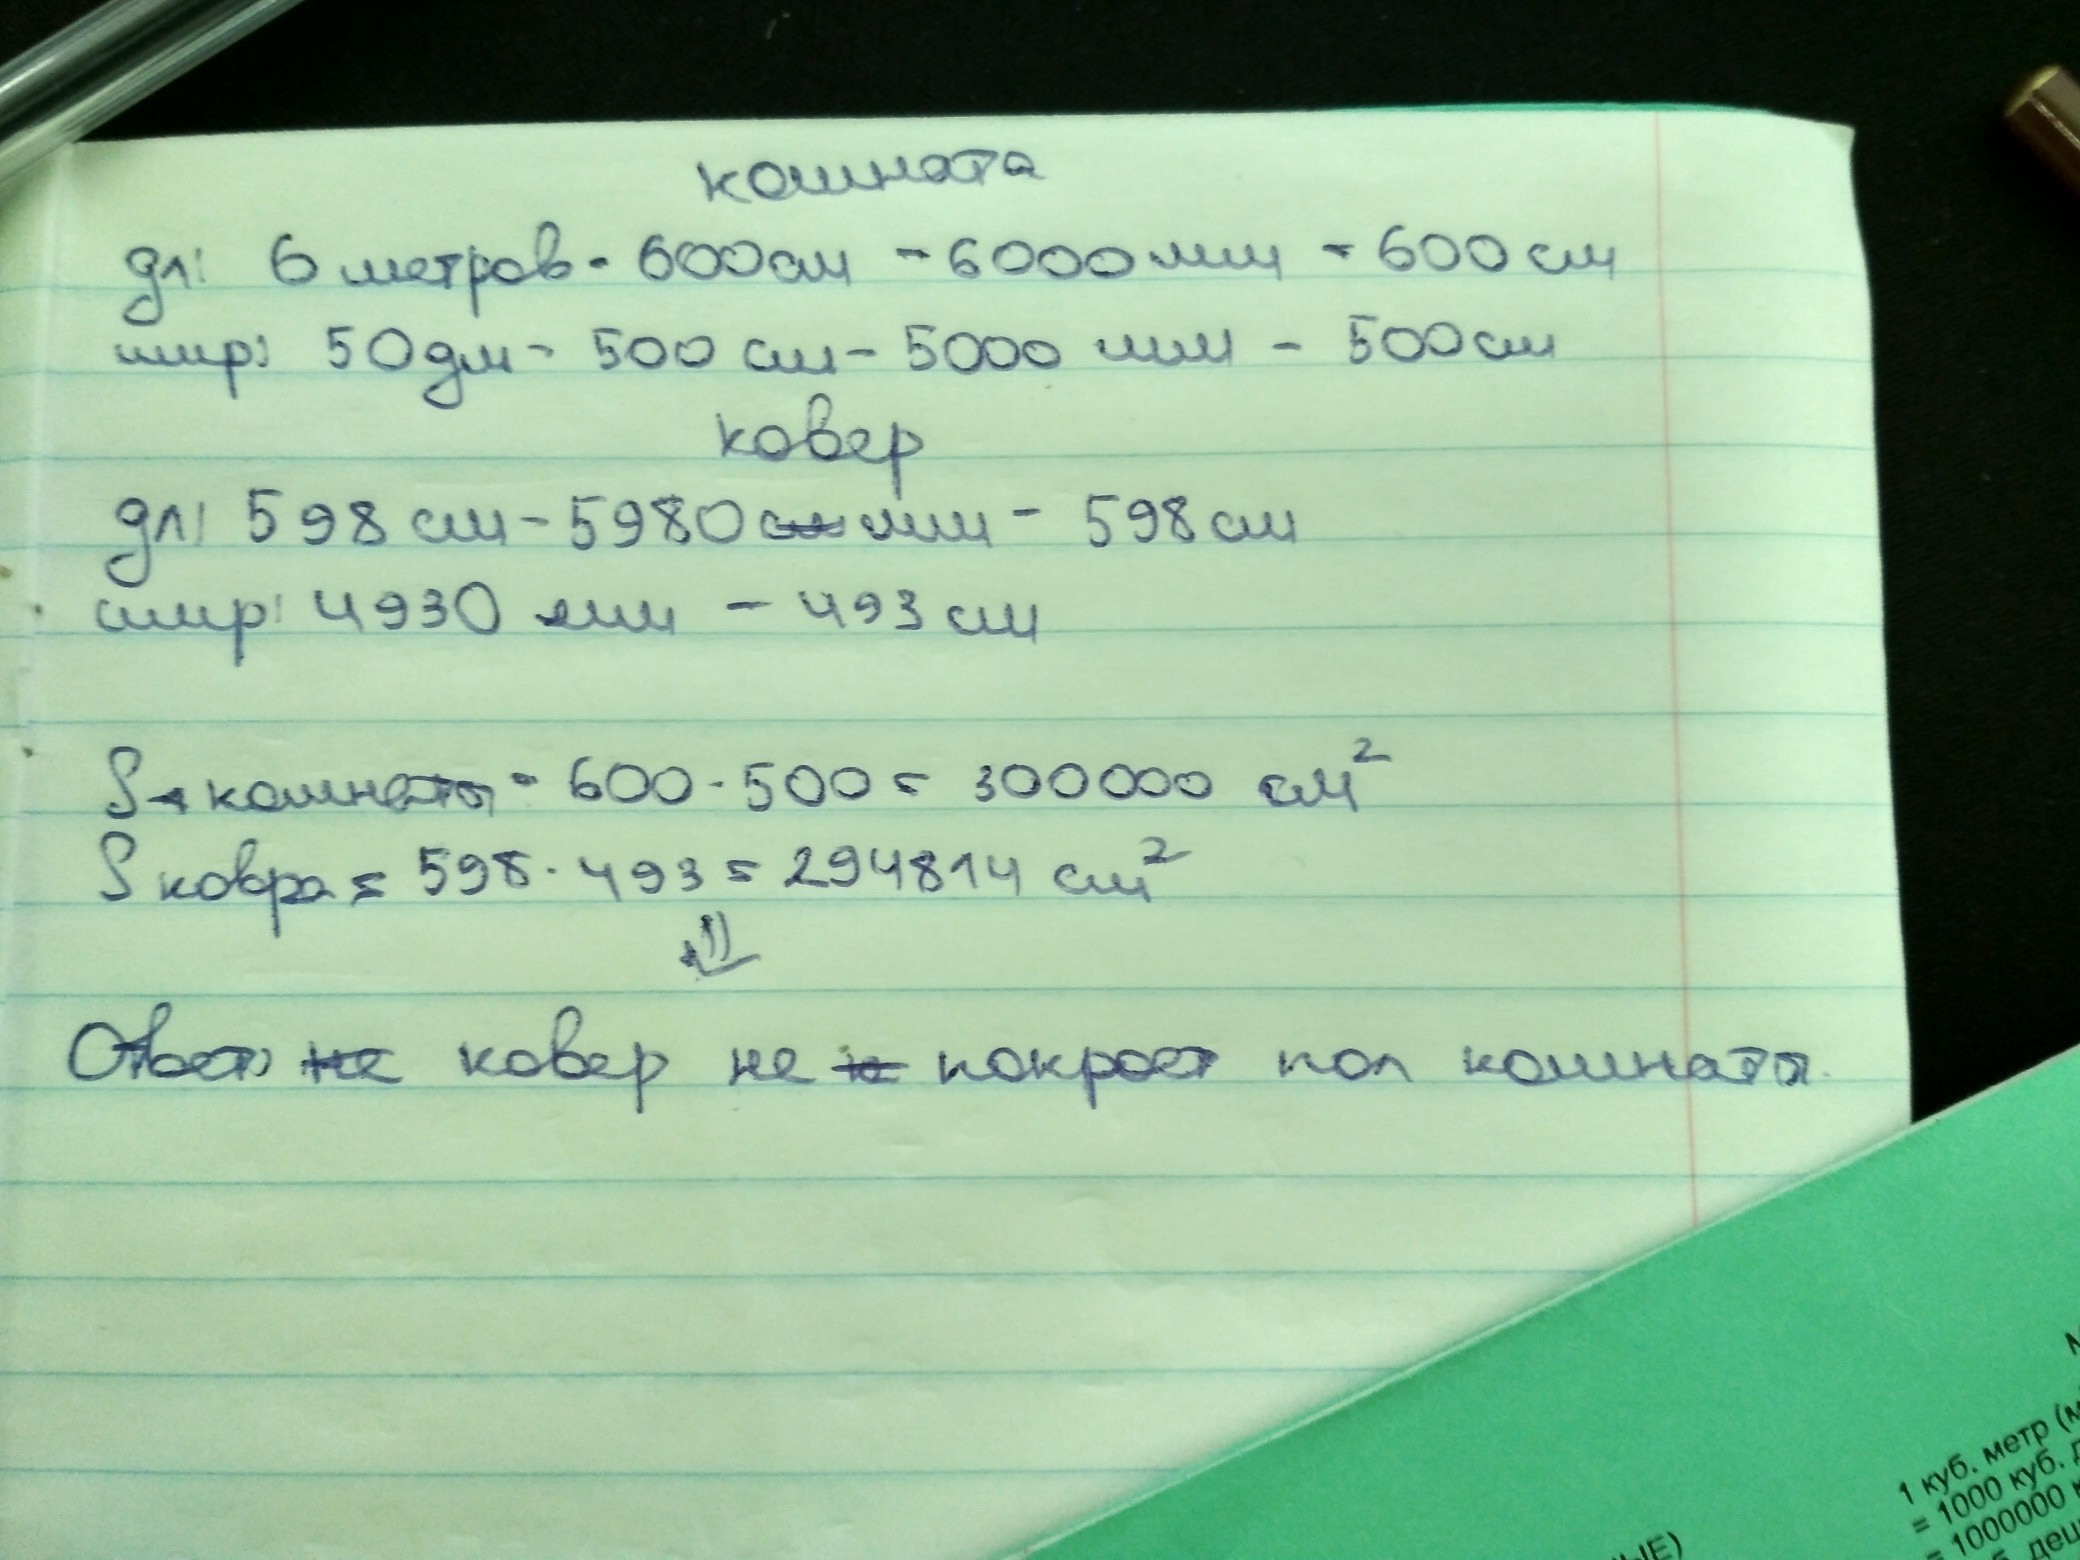 комната
дл: 6 метров - 600 см - 6000 мм - 600 см
шир: 50 дм - 500 см - 5000 мм - 500 см
ковер
дл: 598 см - 5980 см мм - 598 см
шир: 4930 мм - 493 см
S комнаты = 600 · 500 = 300000 см²
S ковра = 598 · 493 = 294814 см²
⇓
Ответ: не ковер не не покроет пол комнаты.
1 куб. метр (м
= 1000 куб. д
= 1000000 к
ЫЕ)